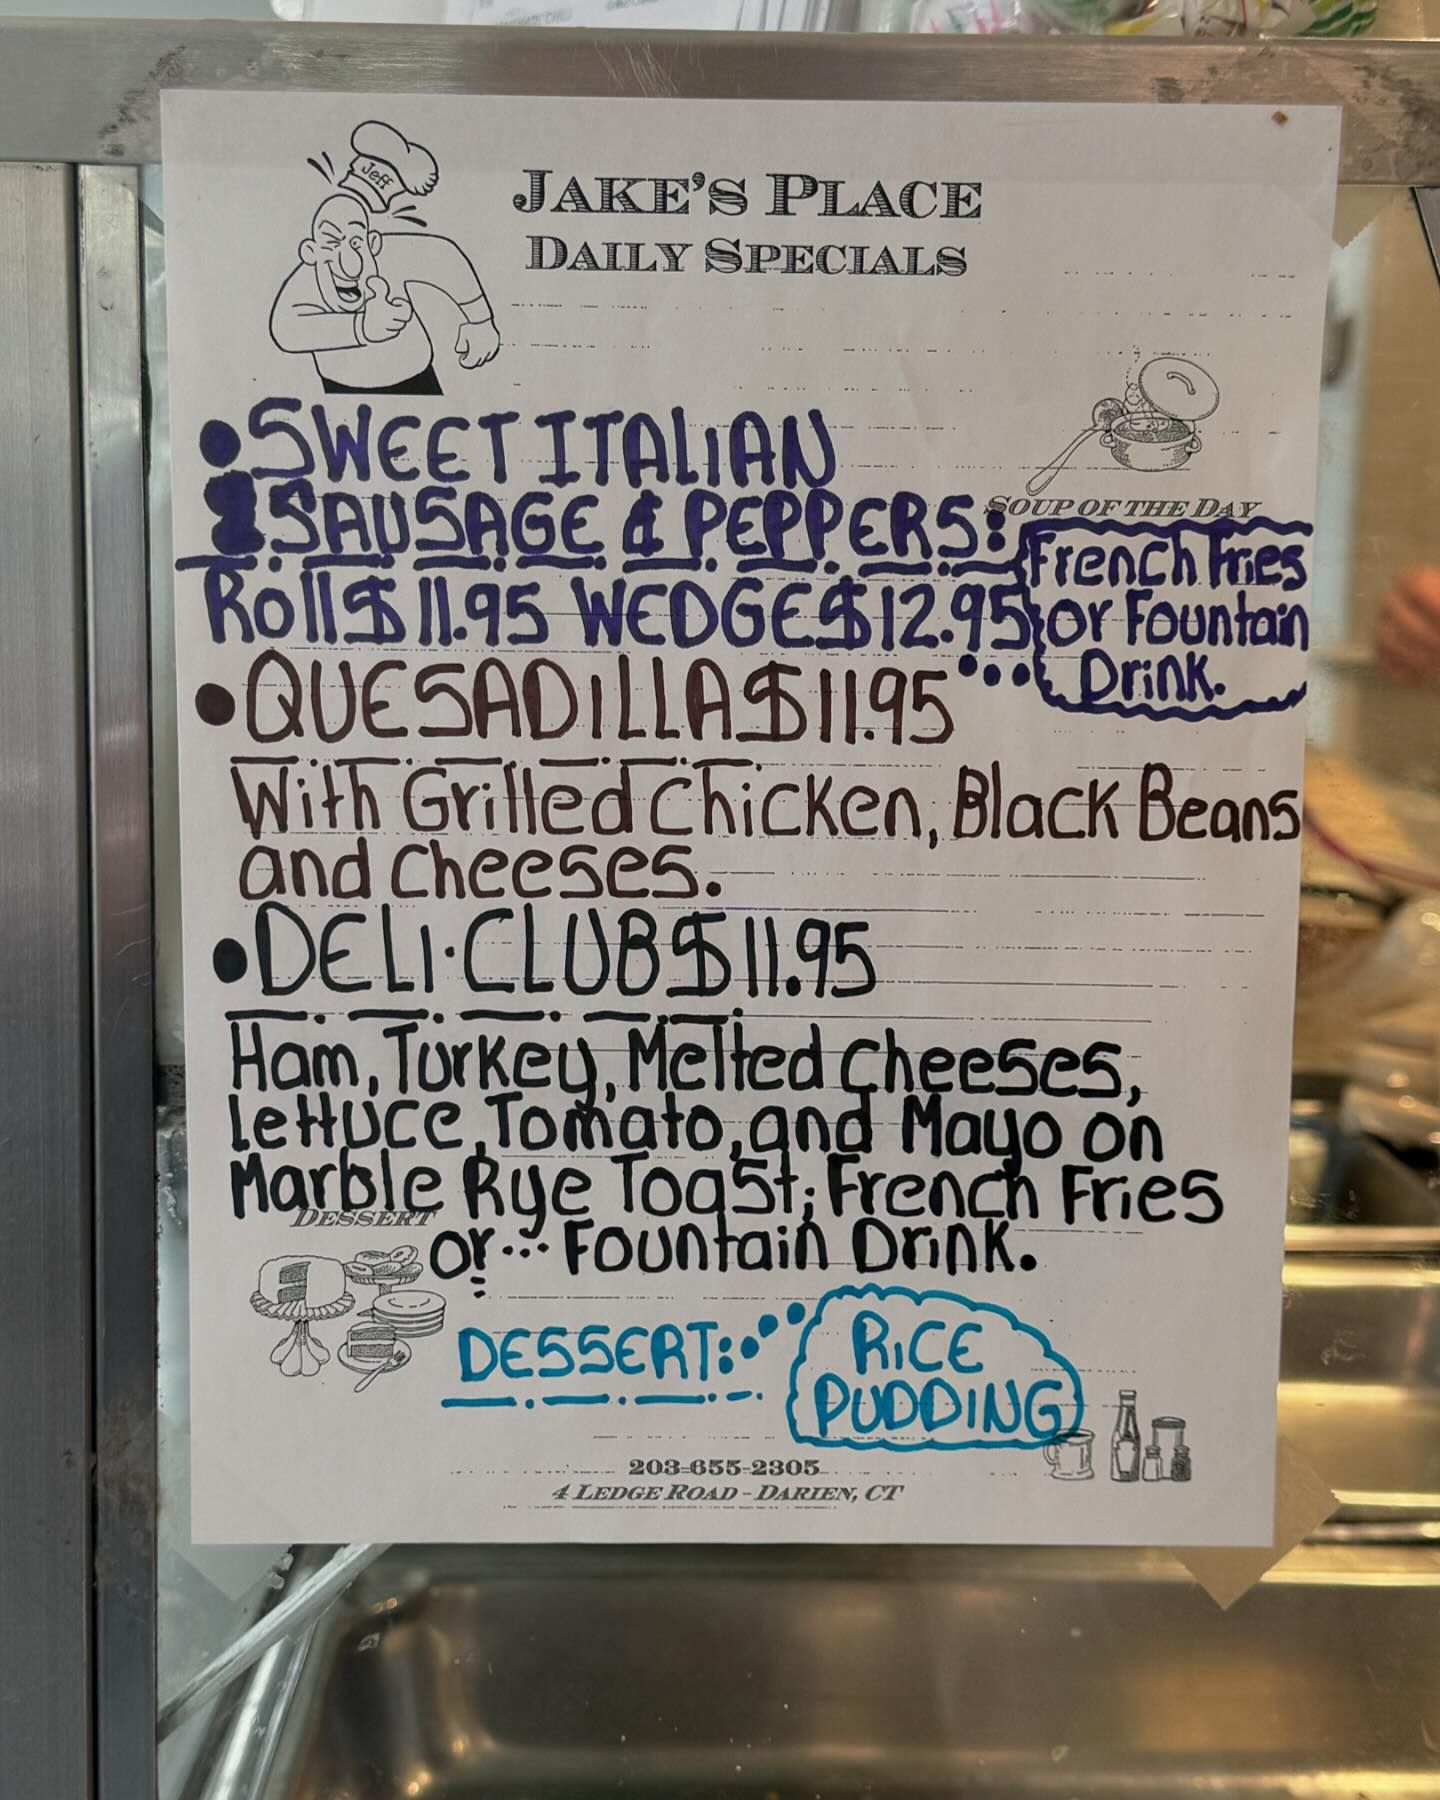 Jeff
JAKE'S PLACE
DAILY SPECIALS
• SWEET ITALIAN
SAUSAGE & PEPPERS:
SOUP OF THE DAY
Roll $11.95 WEDGE $12.95
French Fries
or Fountain
Drink.
• QUESADILLA $11.95
With Grilled Chicken, Black Beans
and Cheeses.
• DELI·CLUB $11.95
Ham, Turkey, Melted Cheeses,
Lettuce, Tomato, and Mayo on
Marble Rye Toast; French Fries
DESSERT
or... Fountain Drink.
DESSERT:
RiCE
PUDDING
203-655-2305
4 LEDGE ROAD - DARIEN, CT